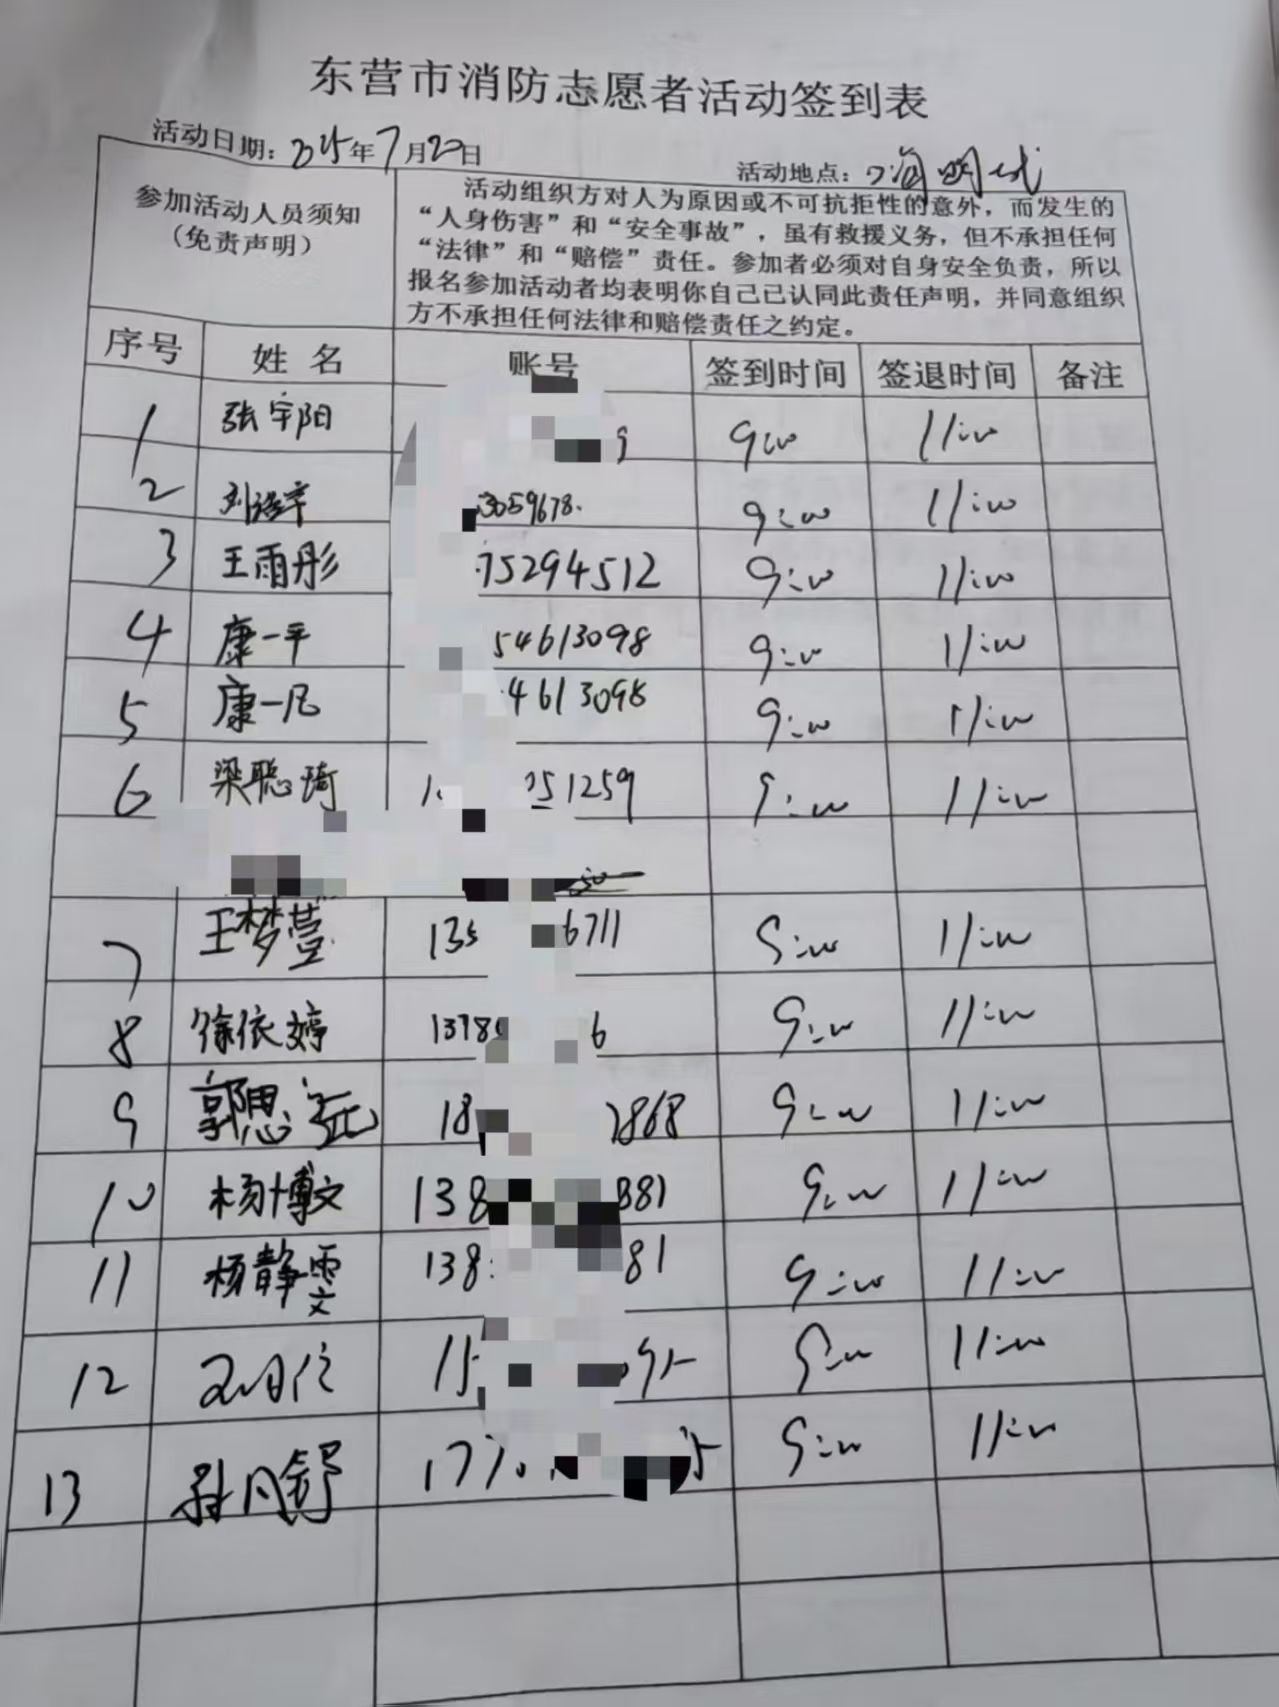 东营市消防志愿者活动签到表
活动日期：2025年7月20日
活动地点：
参加活动人员须知
（免责声明）
活动组织方对人为原因或不可抗拒性的意外，而发生的
“人身伤害”和“安全事故”，虽有救援义务，但不承担任何
“法律”和“赔偿”责任。参加者必须对自身安全负责，所以
报名参加活动者均表明你自己已认同此责任声明，并同意组织
方不承担任何法律和赔偿责任之约定。
序号 姓名 账号 签到时间 签退时间 备注
1 张宇阳 9 9:00 11:00
2 刘 宇 3059678. 9:00 11:00
3 王雨彤 75294512 9:00 11:00
4 康一平 54613098 9:00 11:00
5 康一凡 4613098 9:00 11:00
6 梁聪琦 1 051259 9:00 11:00
7 王梦萱 135 6711 9:00 11:00
8 徐依婷 1378 6 9:00 11:00
9 郭思 18 2868 9:00 11:00
10 杨博文 138 881 9:00 11:00
11 杨静雯 138 81 9:00 11:00
12 15 95 9:00 11:00
13 孙 舒 17 5 9:00 11:00